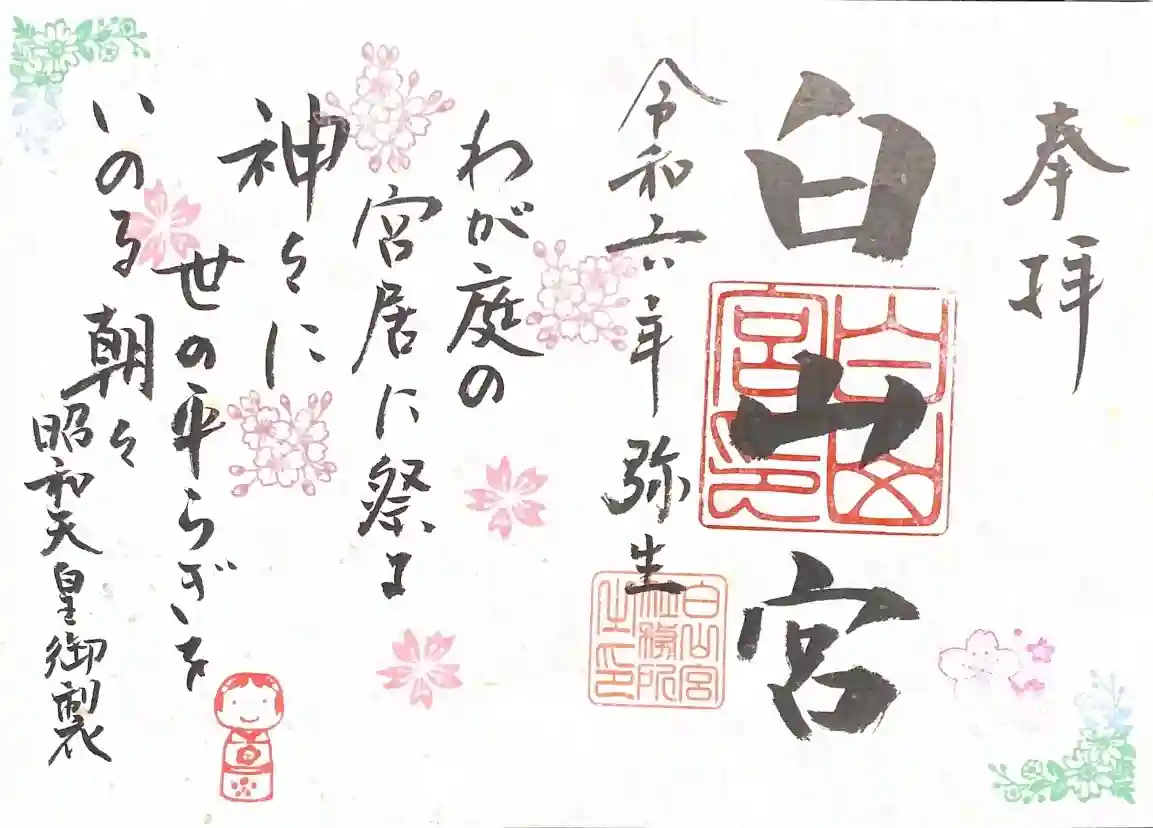 奉拝
白山宮
白山宮印
令和六年弥生
白山宮
社務所
之印
わが庭の
宮居に祭る
神々に
世の平らぎを
いのる朝々
昭和天皇御製